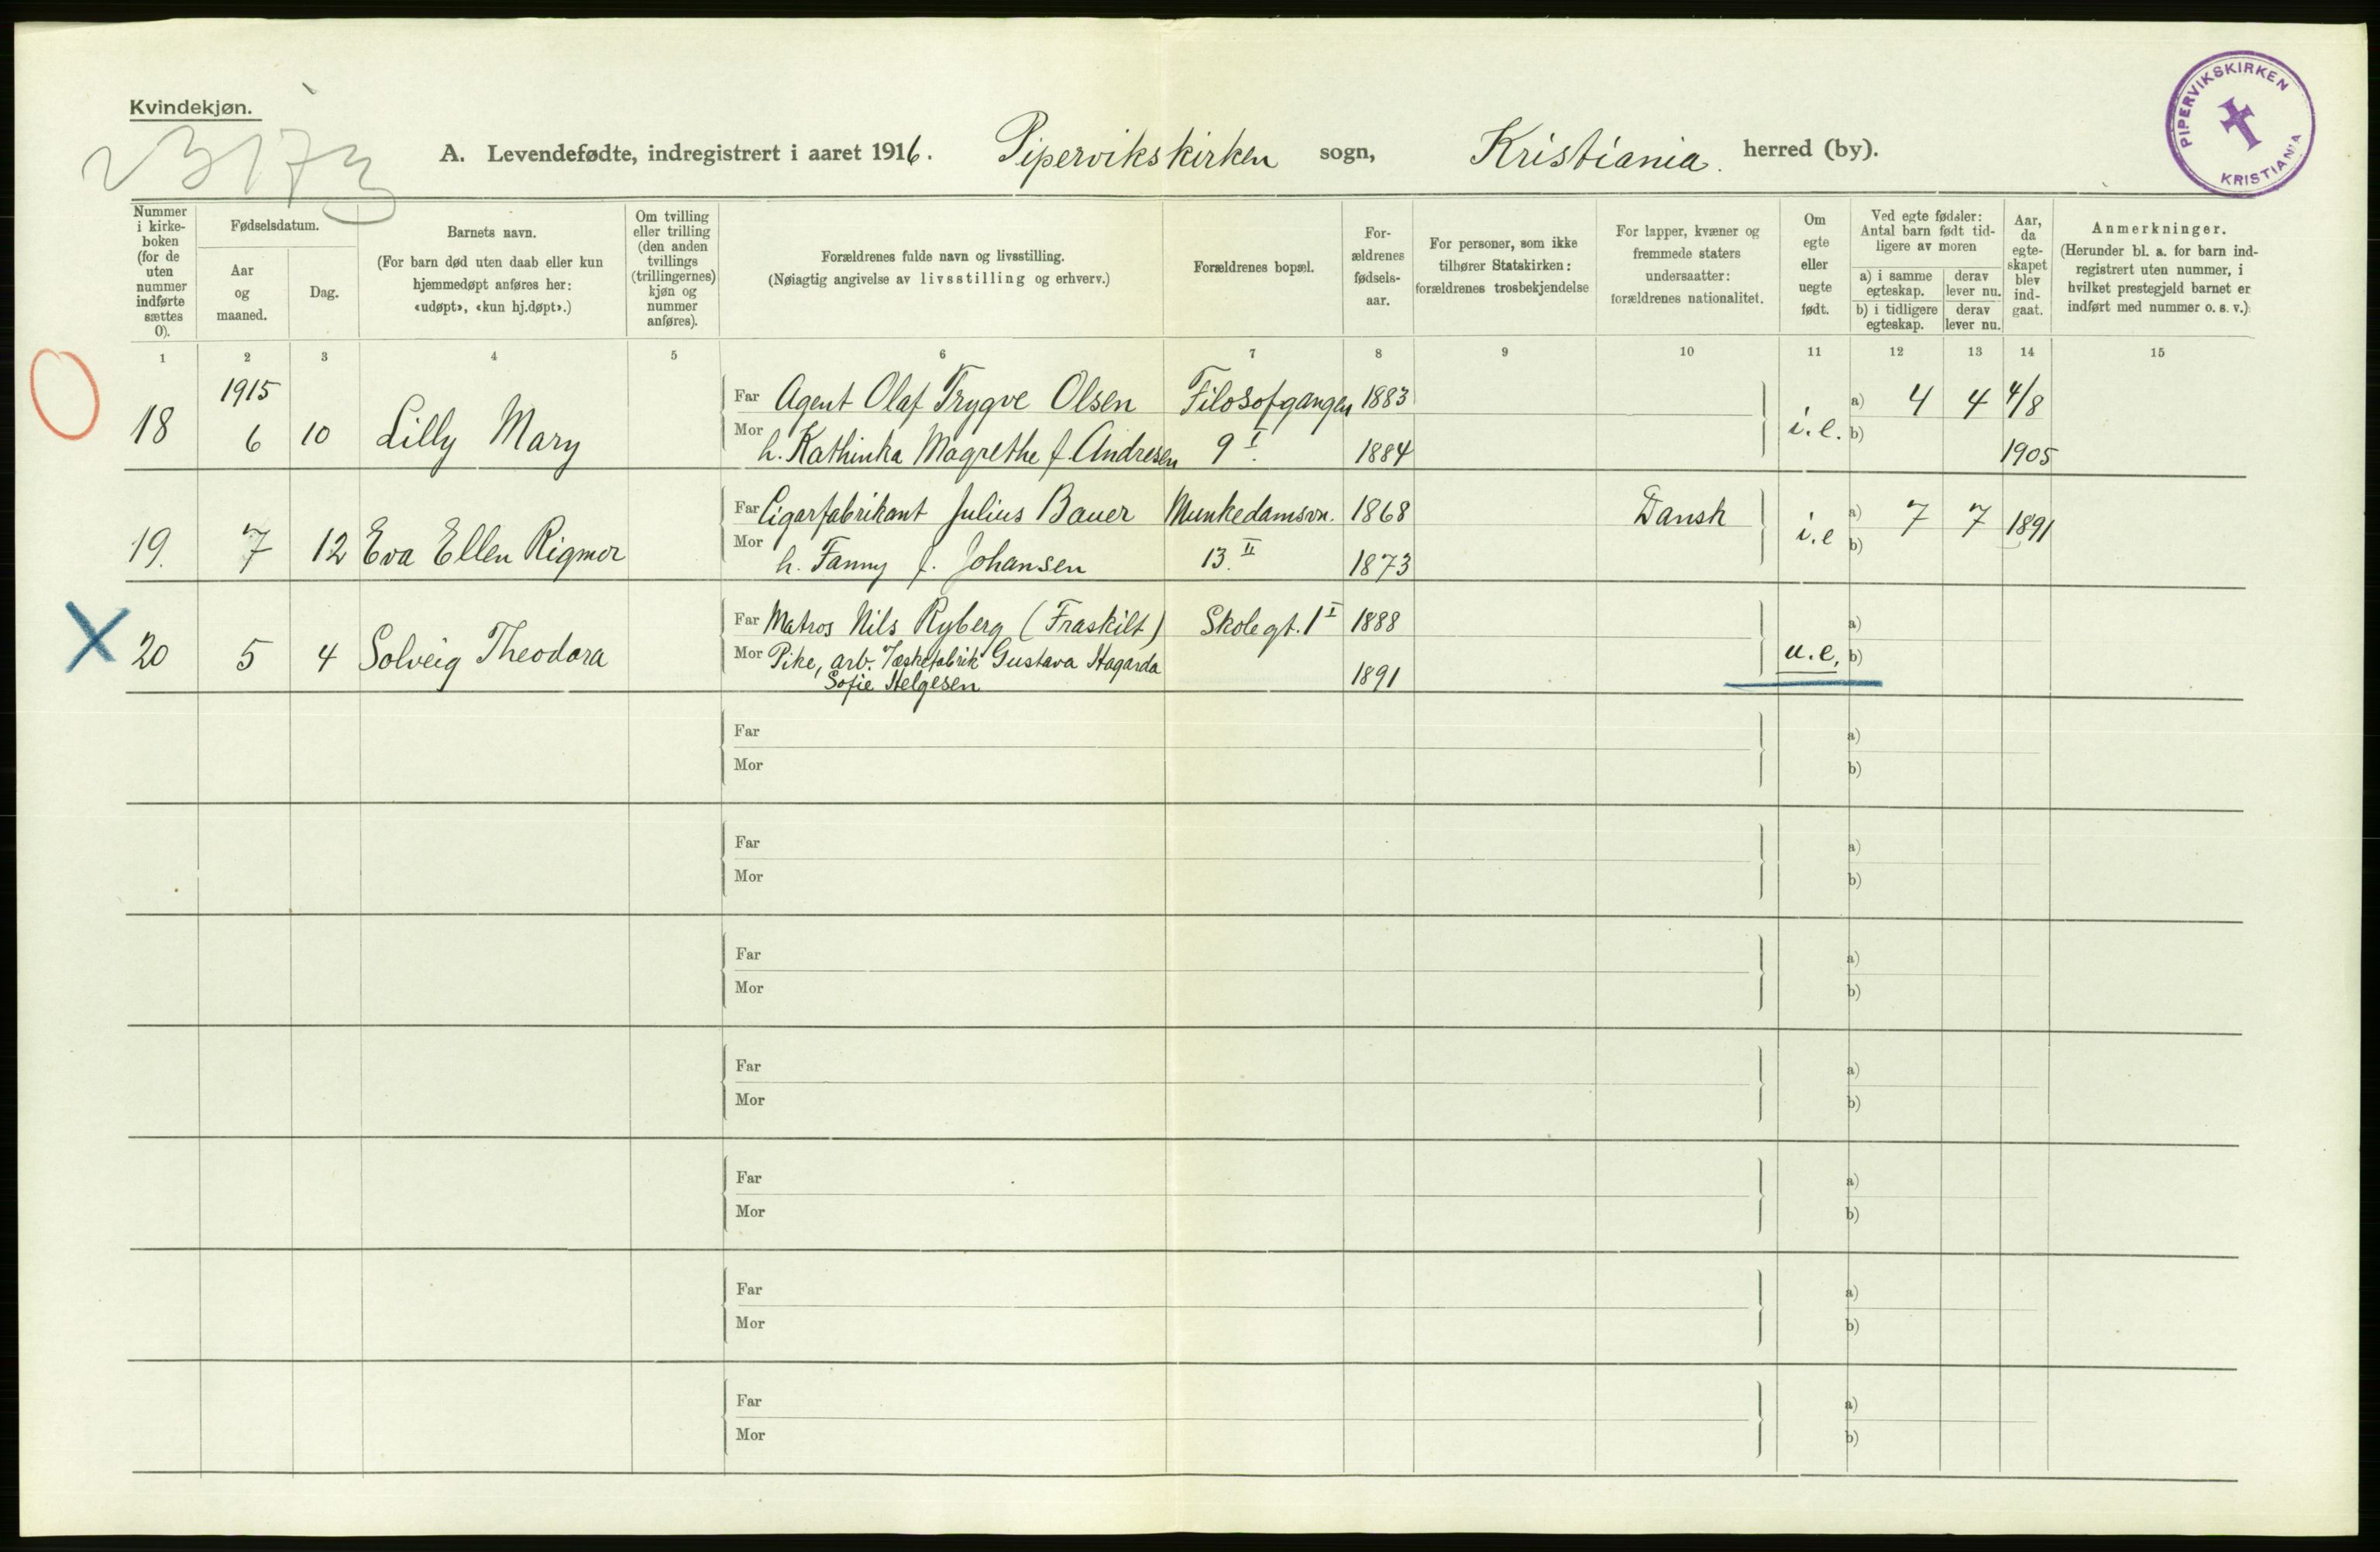 Kvindekjøn.
23173
A. Levendefødte, indregistrert i aaret 1916. Pipervikskirken sogn, Kristiania. herred (by).
PIPERVIKSKIRKEN
KRISTIANIA
Nummer i kirke- boken (for de uten nummer indførte sættes 0).
Fødselsdatum.
Aar og maaned.
Dag.
Barnets navn.
(For barn død uten daab eller kun hjemmedøpt anføres her: «udøpt», «kun hj.døpt».)
Om tvilling eller trilling (den anden tvillings (trillingernes) kjøn og nummer anføres).
Forældrenes fulde navn og livsstilling.
(Nøiagtig angivelse av livsstilling og erhverv.)
Forældrenes bopæl.
For- ældrenes fødsels- aar.
For personer, som ikke tilhører Statskirken: forældrenes trosbekjendelse
For lapper, kvæner og fremmede staters undersaatter: forældrenes nationalitet.
Om egte eller uegte født.
Ved egte fødsler: Antal barn født tid- ligere av moren
a) i samme egteskap.
derav lever nu.
b) i tidligere egteskap.
derav lever nu.
Aar, da egte- skapet blev ind- gaat.
Anmerkninger.
(Herunder bl. a. for barn ind- registrert uten nummer, i hvilket prestegjeld barnet er indført med nummer o. s. v.)
1 2 3 4 5 6 7 8 9 10 11 12 13 14 15
1915
18 6 10 Lilly Mary
Far Agent Olaf Trygve Olsen Filosofgangen 1883
Mor h. Kathinka Magrethe f. Andresen 9 I. 1884
i.e. a) 4 4 4/8
b) 1905
19. 7 12 Eva Ellen Rigmor
Far Cigarfabrikant Julius Bauer Munkedamsvn. 1868 Dansk
Mor h. Fanny f. Johansen 13. II 1873
i.e a) 7 7 1891
b)
20 5 4 Solveig Theodora
Far Matros Nils Ryberg (Fraskilt) Skolegt. 1 I 1888
Mor Pike, arb. Æskefabrik Gustava Hagarda
Sofie Helgesen 1891
u.e. a)
b)
Far a)
Mor b)
Far a)
Mor b)
Far a)
Mor b)
Far a)
Mor b)
Far a)
Mor b)
Far a)
Mor b)
Far a)
Mor b)